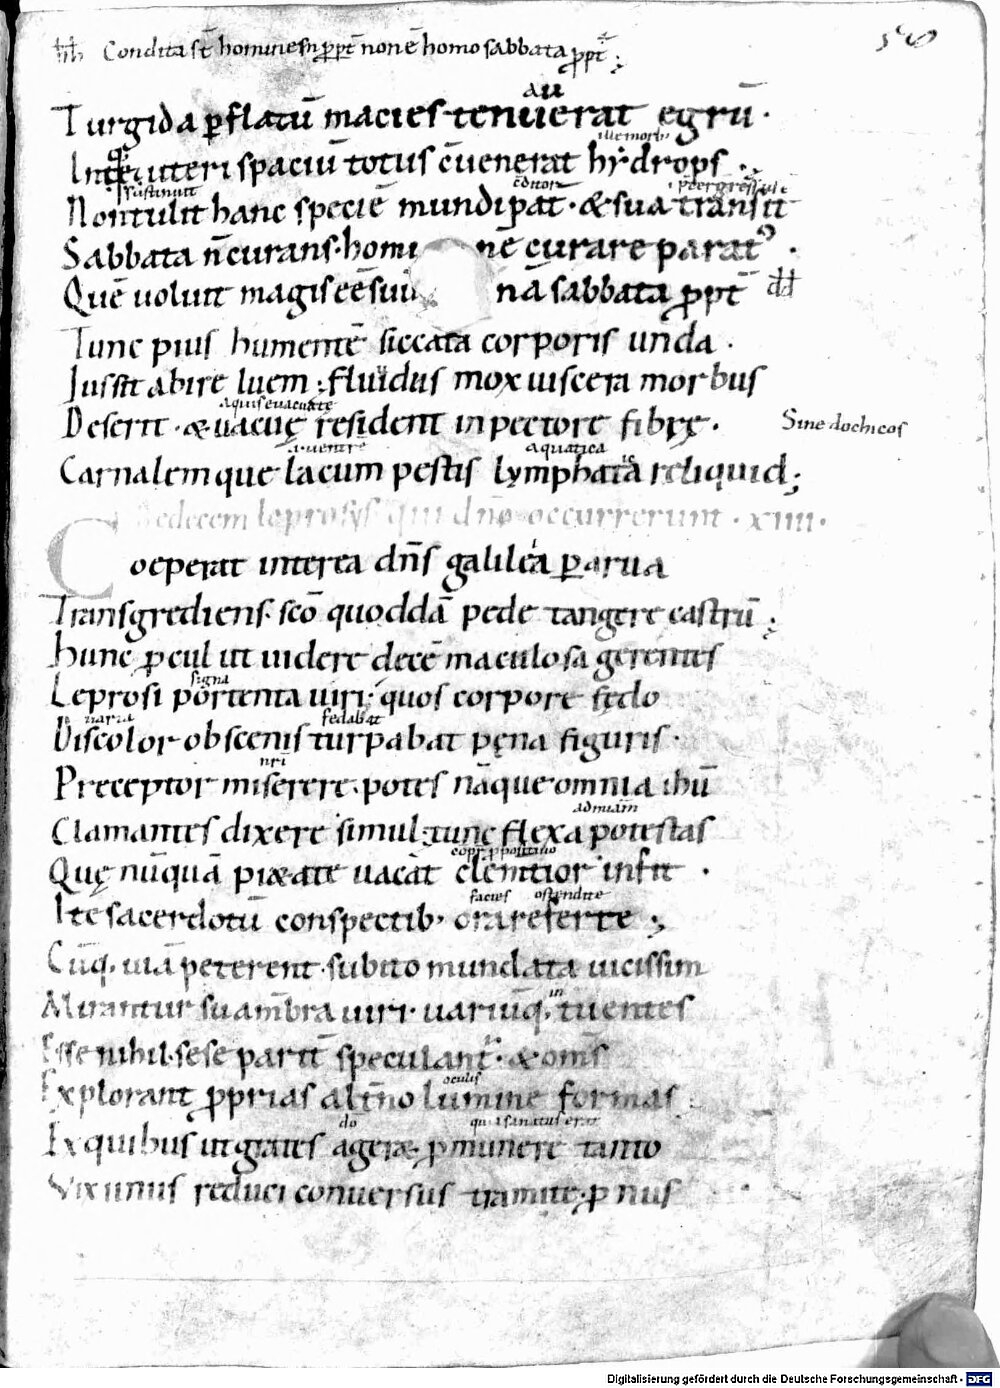 Condita st̄ homines n̄ ꝓpt̄ non ē homo sabbata ꝓpt̄;
au
Turgida ꝑ flatū macies tenuerat egrū·
ille morb;
uteri spaciū totus c̄uenerat hydrops·;
sustinuit c̄ditor
Non tulit hanc speciē mundi pat̄· & sua transiit
Sabbata n̄ curans· homi nē curare parat᾽·
Quē uoluit magis eē suū nā sabbata ꝓpt̄ dd
Tunc pius humentē siccata corporis unda·
Iussit abire luem; fluidus mox uiscera morbus
aquis euacuate
Deserit· & uacuę resident in pectore fibrę· Sinedochicos
a uentre aquatica
Carnalemque lacum pestis lymphata reliquid;
De decem leprosis qui dn̄o occurrerunt· xiiii·
Coeperat interea dn̄s galilea ꝑ arua
Transgrediens· scō quoddā pede tangere castrū;
Hunc ꝓcul ut uidere decē maculosa gerentes
signa
Leprosi portenta uiri· quos corpore fędo
uaria fedabat
Discolor obscenis turpabat pęna figuris·
nr̄i
Preceptor miserere· potes nāque omnia ihū
Clamantes dixere simul; tunc flexa potestas
Quę nūquā pi&ate uacat clem̄tior infit·
facies ostendite
Ite sacerdotū conspectib; ora referte;
Cūq; uiā peterent· subito mundata uicissim
in
Mirantur sua m̄bra uiri· uariūq; tuentes
Esse nihil· sese partī speculant᾽· & om̄s
oculis
Explorant ꝓprias alt̄no lumine formas
dō quia sanatus erat
Ex quibus ut grates ager& ꝓ munere tanto
Vix unus reduci conuersus tramite· ꝓnus
Digitalisierung gefördert durch die Deutsche Forschungsgemeinschaft · DFG